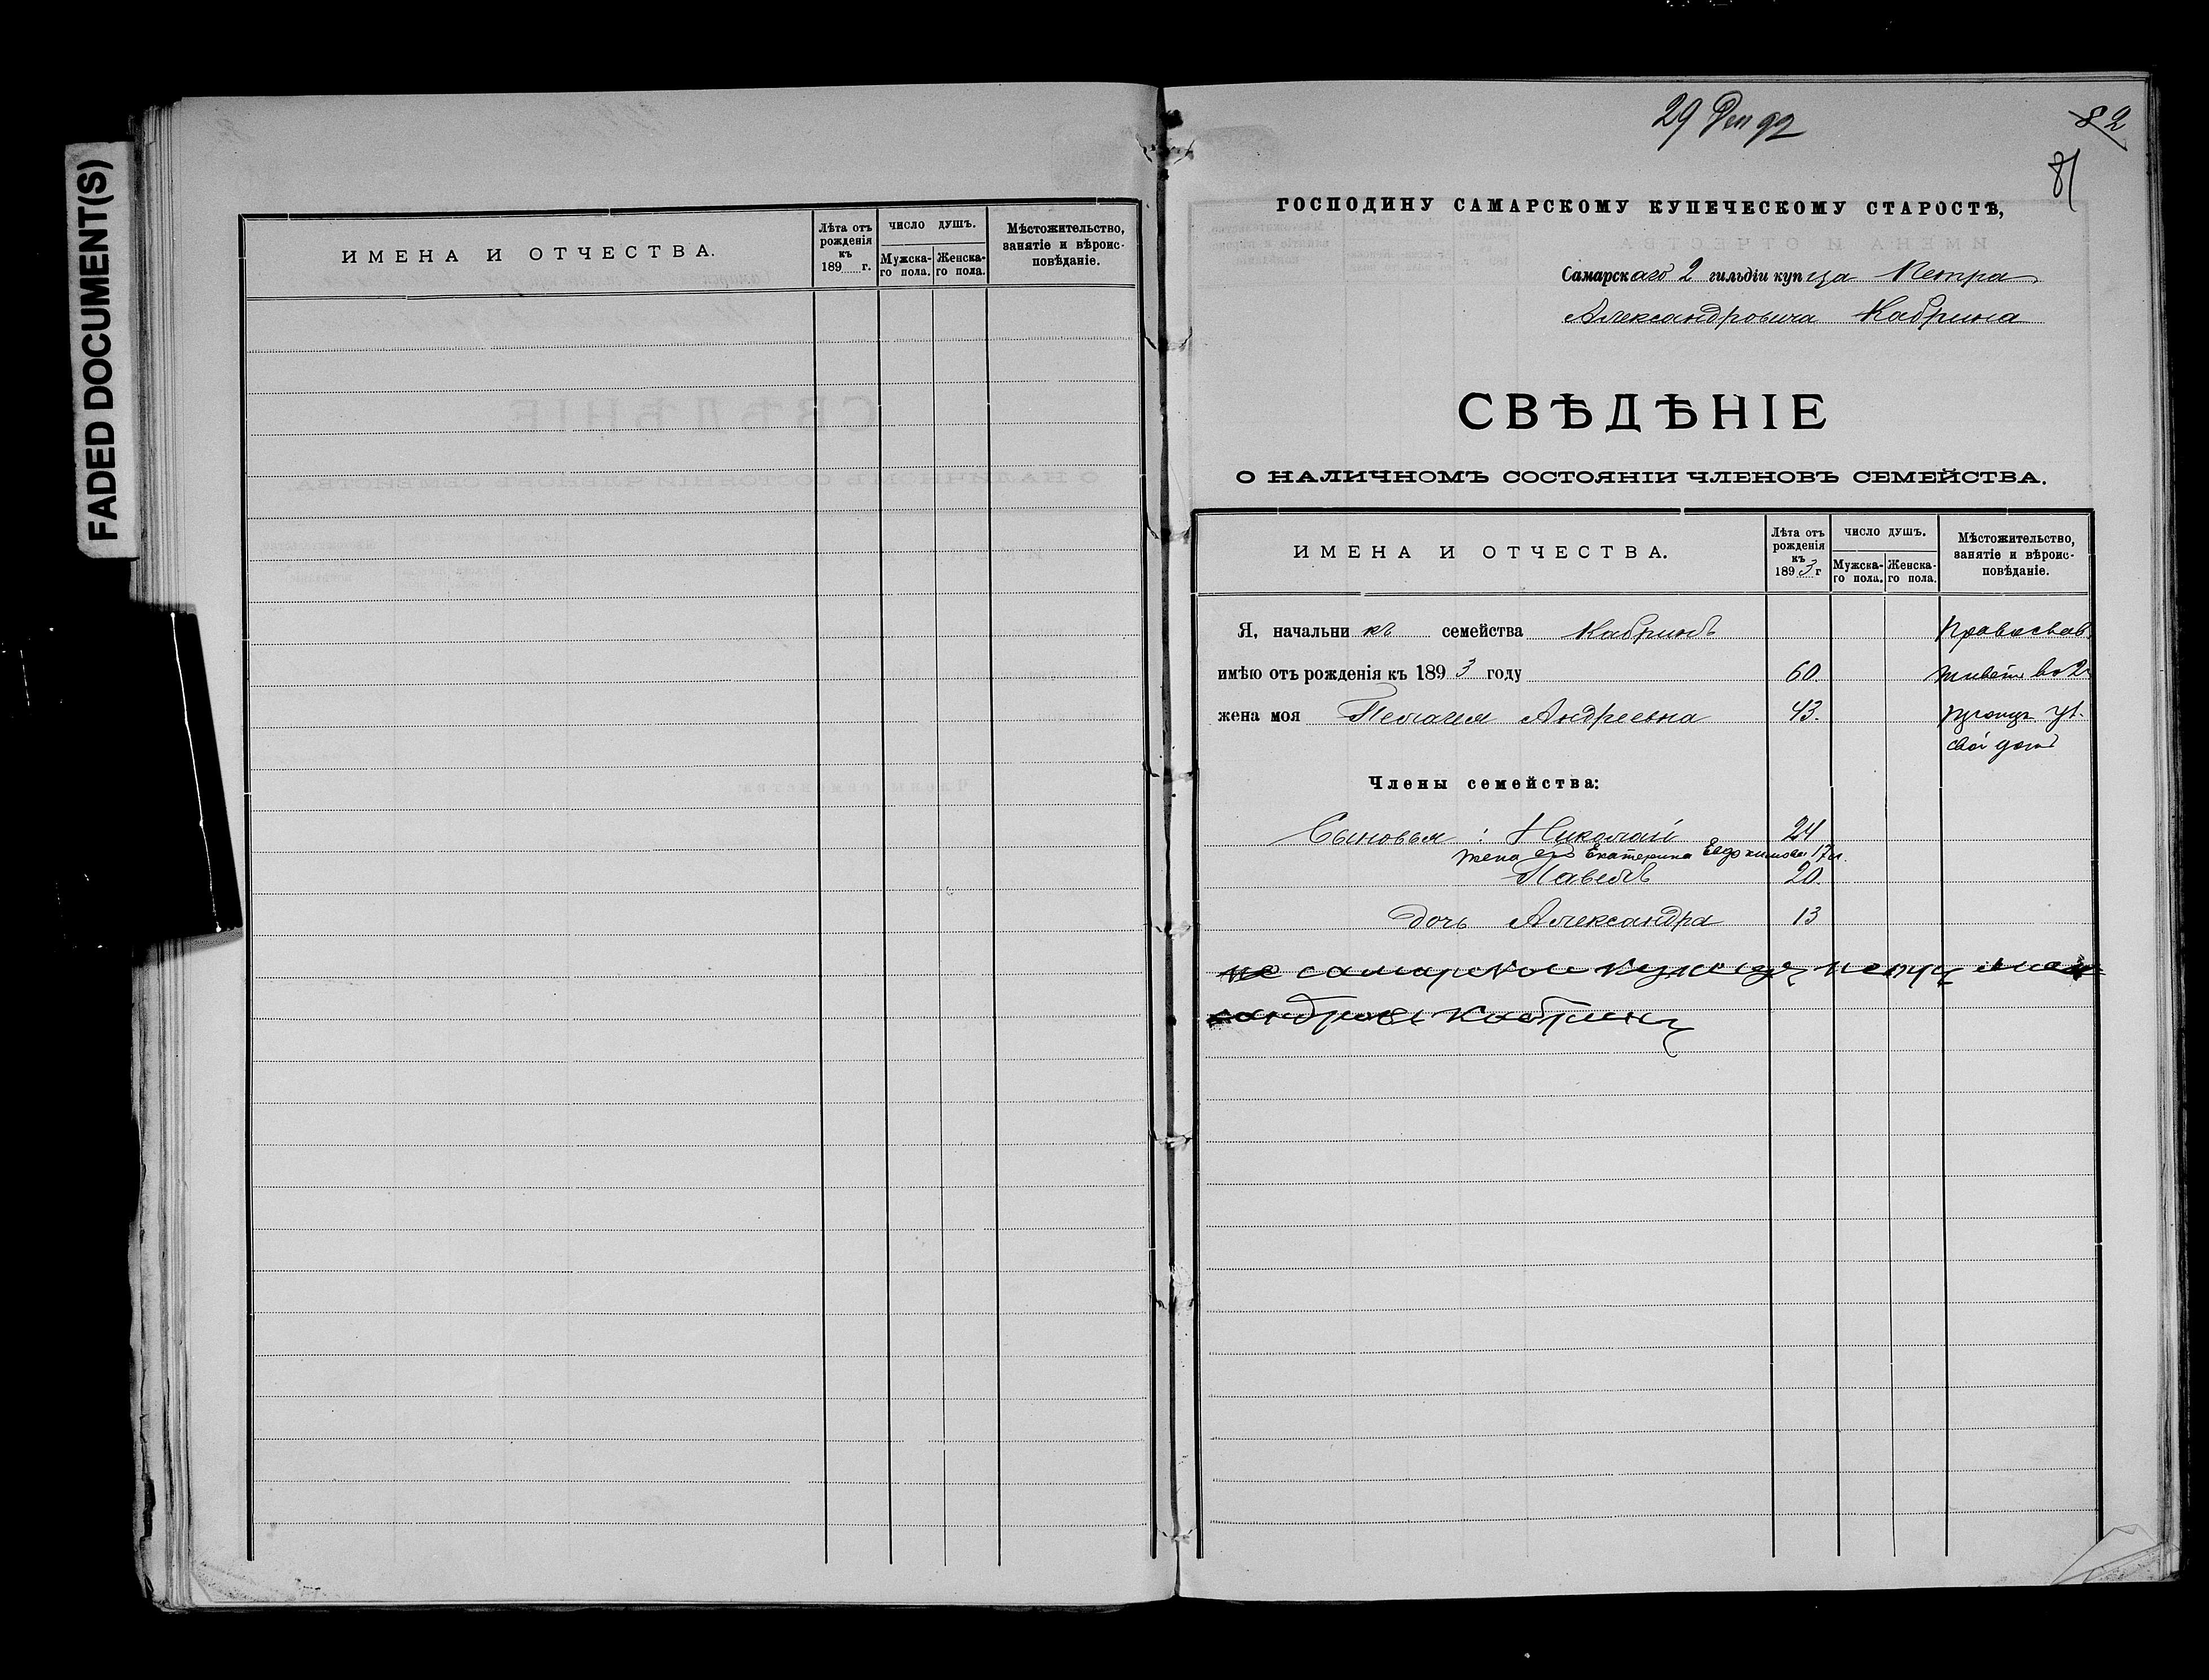 FADED DOCUMENT(S)
ИМЕНА И ОТЧЕСТВА.
Лѣта отъ рожденія къ 189 г.
ЧИСЛО ДУШЪ.
Мужска-го пола.
Женска-го пола.
Мѣстожительство, занятіе и вѣроис-повѣданіе.
29 92
82
81
ГОСПОДИНУ САМАРСКОМУ КУПЕЧЕСКОМУ СТАРОСТѢ,
Самарскаго 2 гильдіи купца Петра
Александровича Кабрина
СВѢДѢНІЕ
О НАЛИЧНОМЪ СОСТОЯНІИ ЧЛЕНОВЪ СЕМЕЙСТВА.
ИМЕНА И ОТЧЕСТВА.
Лѣта отъ рожденія къ 1893 г
ЧИСЛО ДУШЪ.
Мужска-го пола.
Женска-го пола.
Мѣстожительство, занятіе и вѣроис-повѣданіе.
Я, начальникъ семейства Кабринъ Православ.
имѣю отъ рожденія къ 1893 году 60. живетъ во 2
жена моя Пелагея Андреевна 43.
свой домъ
Члены семейства:
Сыновья: Николай 24
жена его Екатерина Евдокимова 17 л.
Павелъ 20.
дочь Александра 13
самарской купецъ
Кабринъ